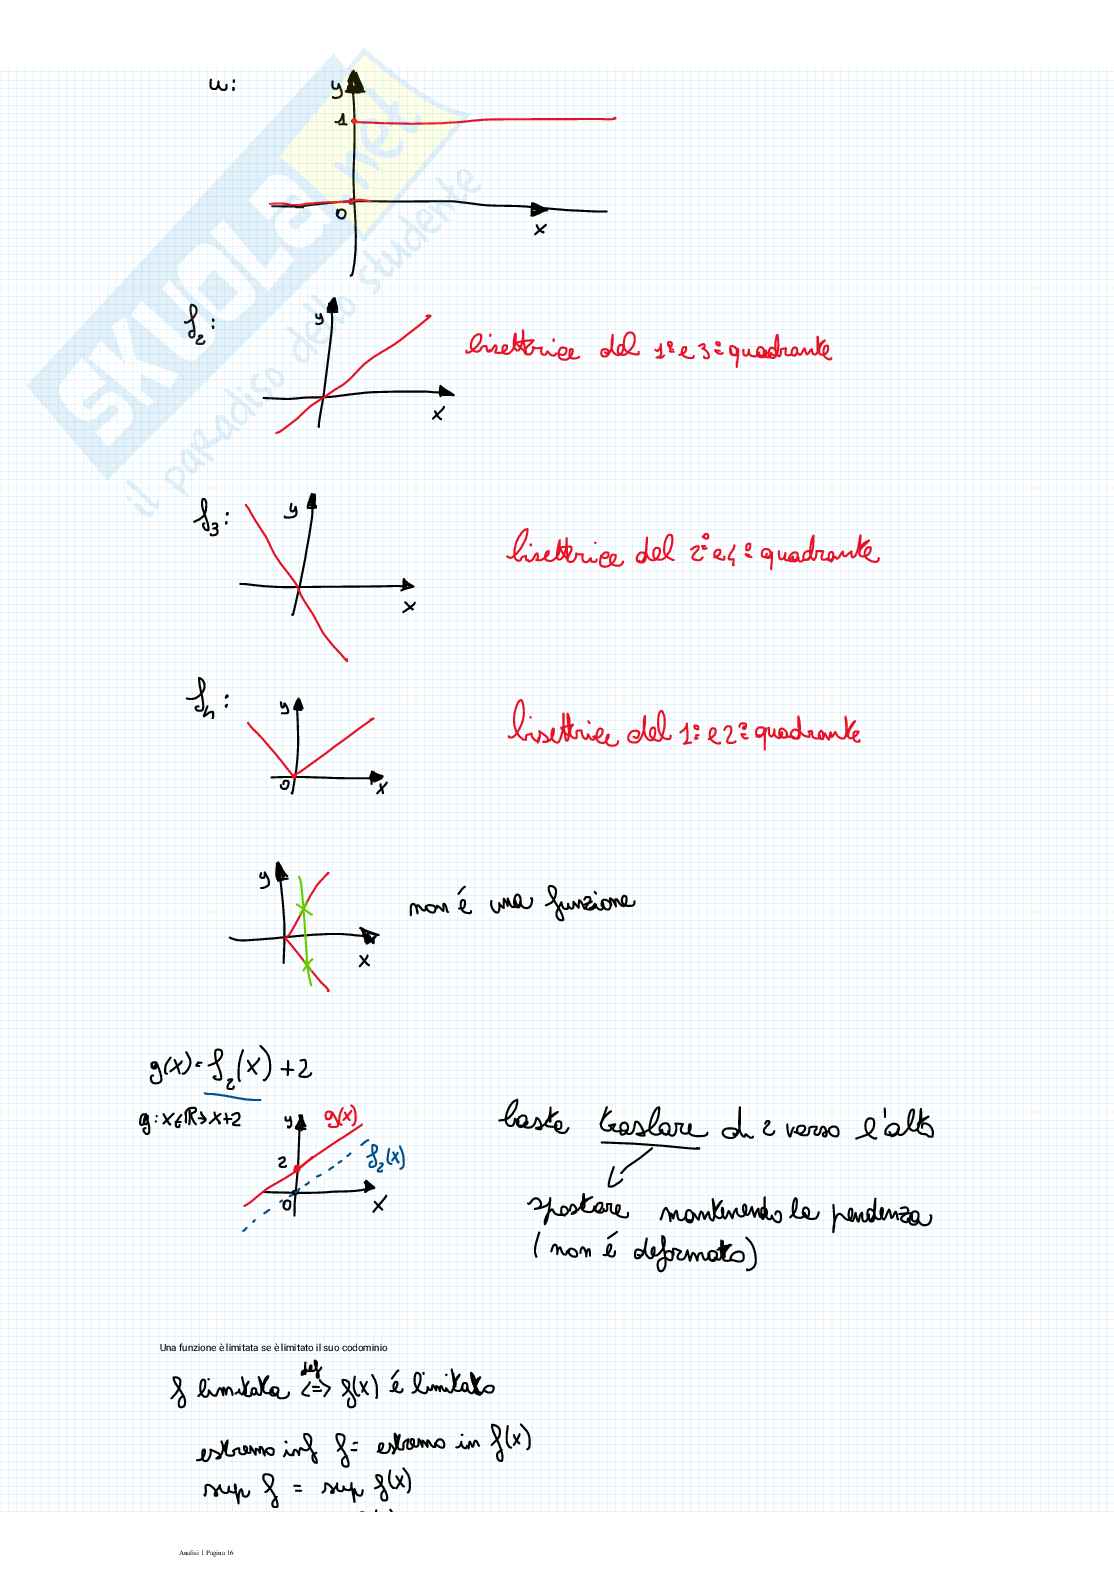 u:
y
1
0
x
SKUOLA.net
il paradiso dello studente
f₂:
y
x
bisettrice del 1° e 3° quadrante
f₃:
y
x
bisettrice del 2° e 4° quadrante
f₄:
y
0
x
bisettrice del 1° e 2° quadrante
y
x
non é una funzione
g(x) = f₂(x) + 2
g: x∈ℝ→x+2
y
g(x)
2
f₂(x)
0
x
basta traslare di 2 verso l'alto
spostare mantenendo la pendenza
(non é deformato)
Una funzione è limitata se è limitato il suo codominio
def
f limitata <=> f(x) é limitato
estremo inf f = estremo in f(x)
sup f = sup f(x)
Analisi 1 Pagina 16